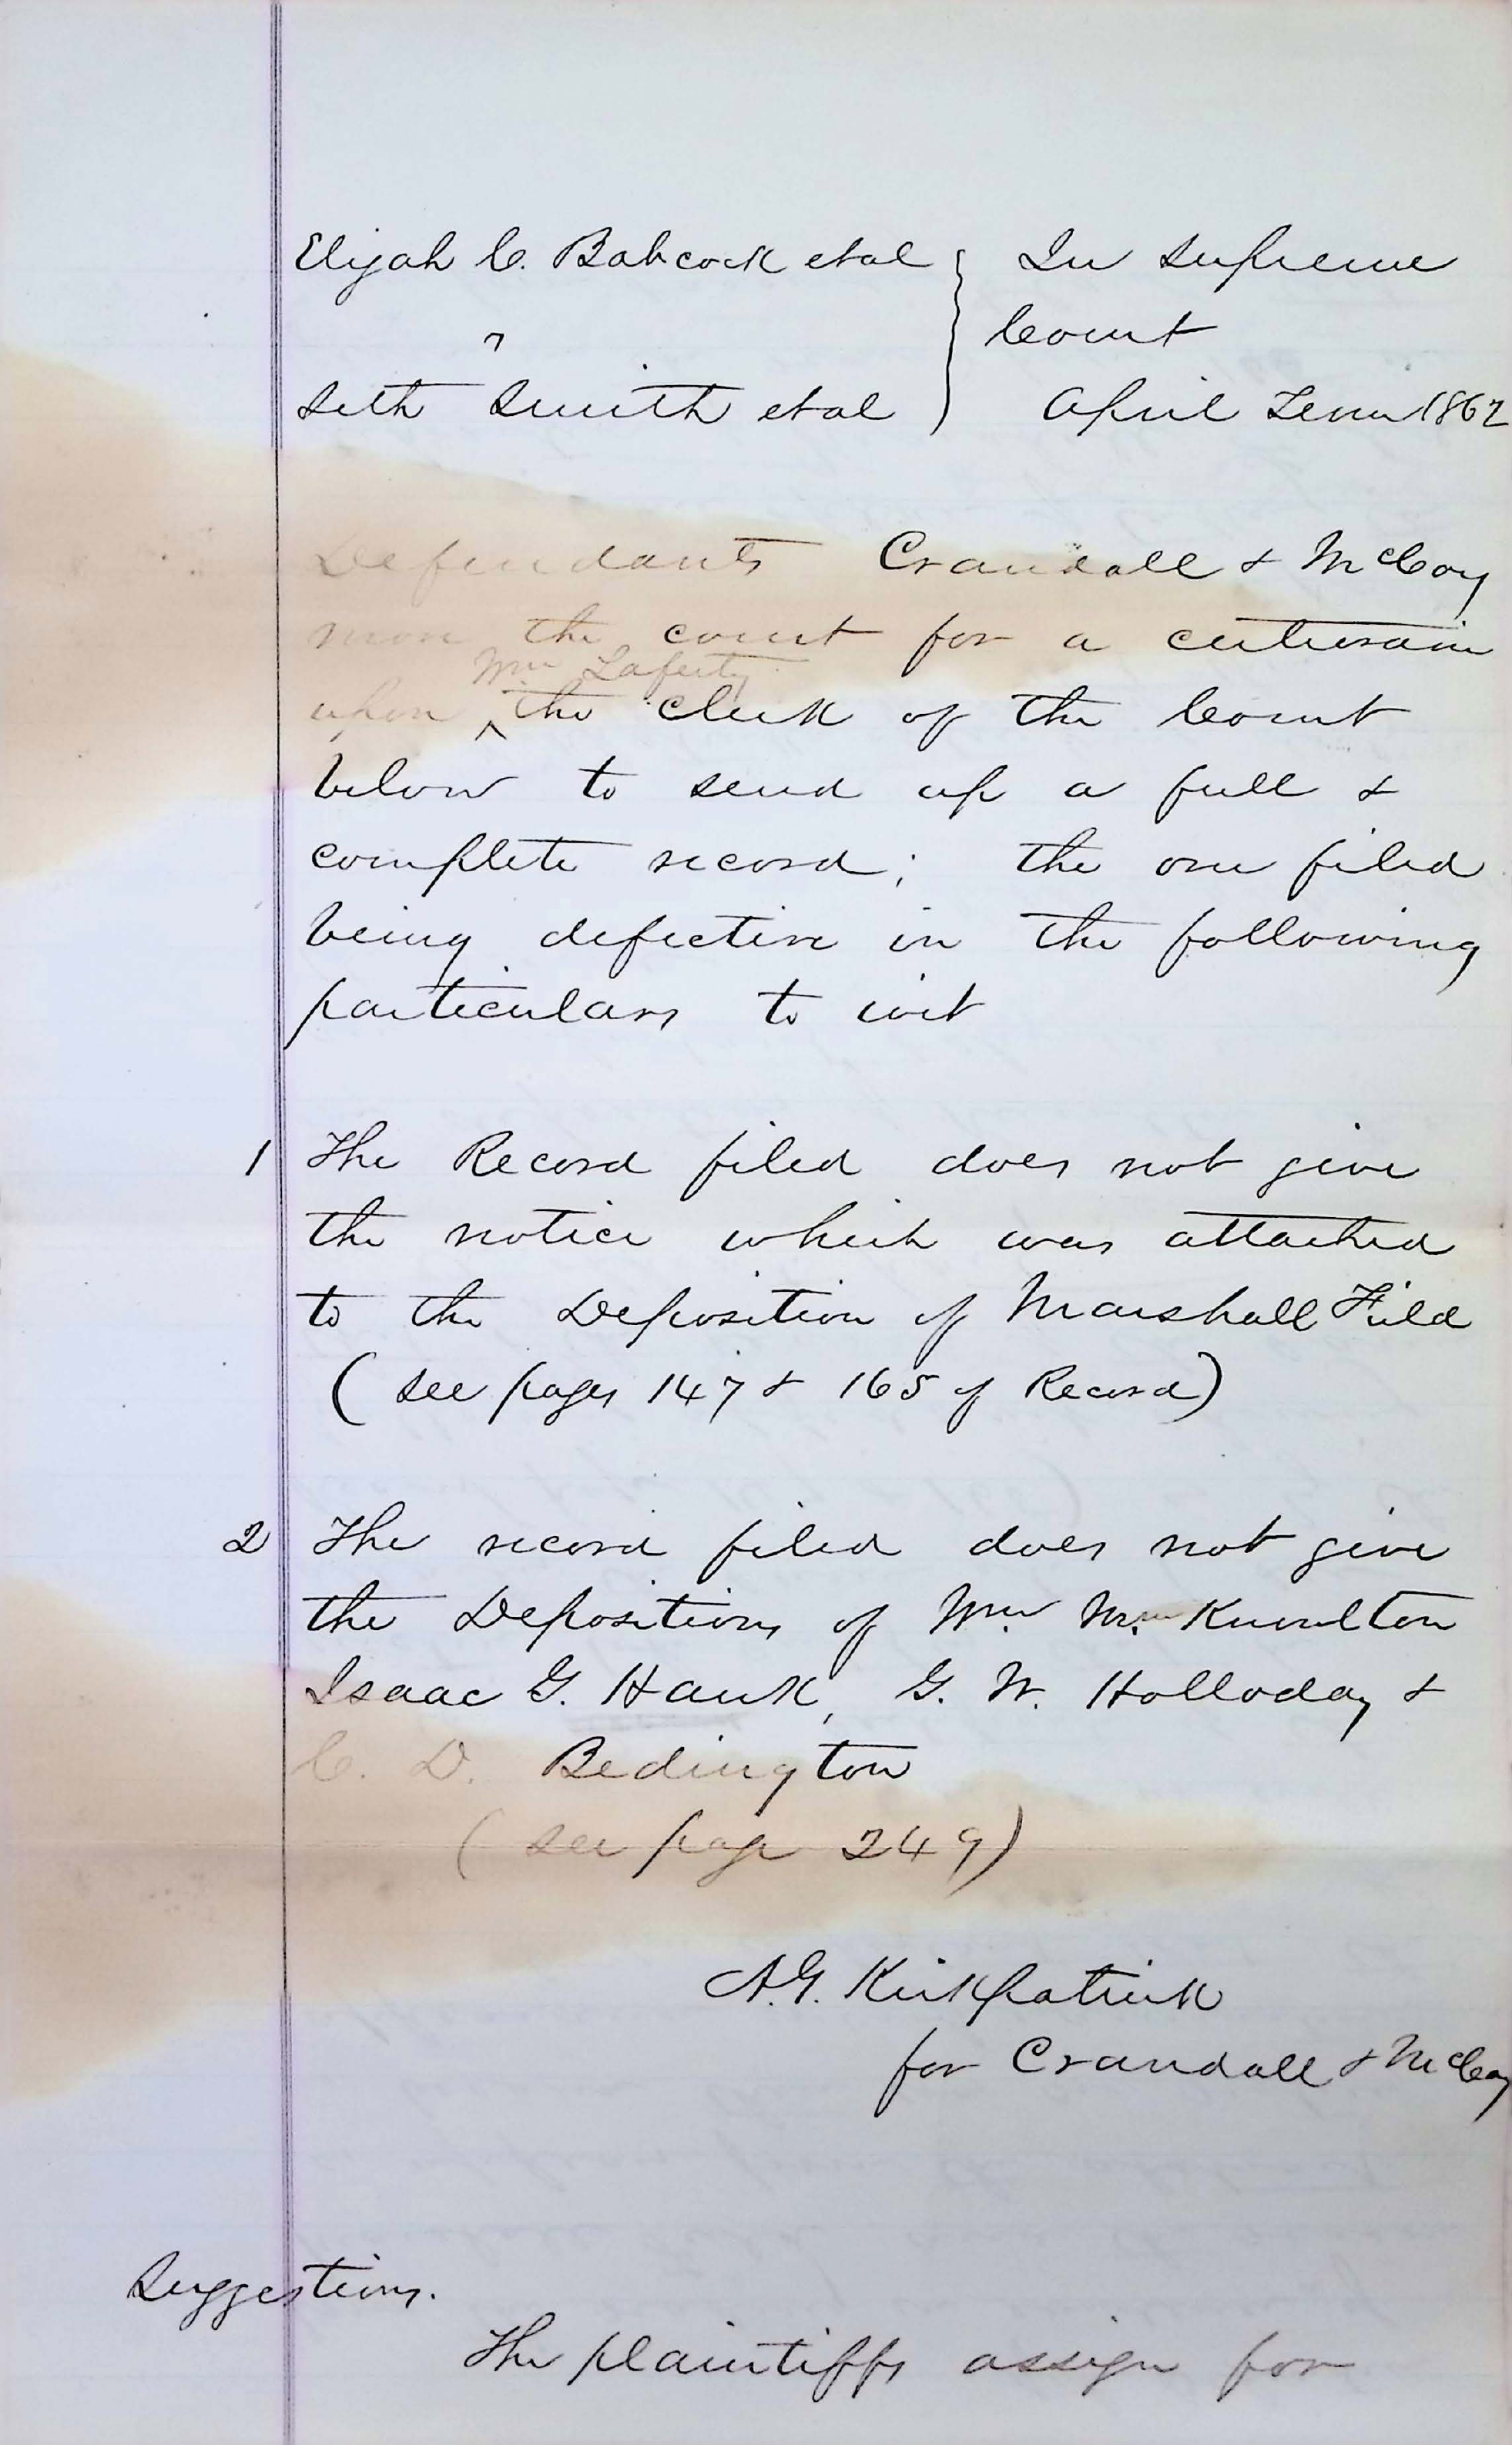 Elijah C. Babcock et al } In Supreme
v Court
Seth Smith et al } April Term 1862
Defendants Crandall & McCoy
move the court for a certiorari
Wm Laferty
upon ^ the clerk of the Court
below to send up a full &
complete record; the one filed
being defective in the following
particulars to wit
1 The Record filed does not give
the notice which was attached
to the Deposition of Marshall Field
(see pages 147 & 165 of Record)
2 The record filed does not give
the Depositions of Wm. M. Knowlton
Isaac G. Hauk, G. W. Holloday &
C. D. Bedington
(see page 249)
A.G. Kirkpatrick
for Crandall & McCoy
Suggestions.
The plaintiffs assign for